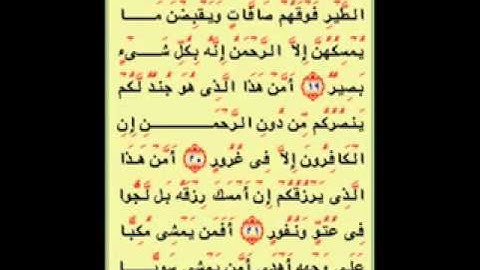 الطَّيْرِ فَوْقَهُمْ صَافَّاتٍ وَيَقْبِضْنَ مَا
يُمْسِكُهُنَّ إِلاَّ الرَّحْمَنُ إِنَّهُ بِكُلِّ شَىْءٍ
بَصِيرٌ ﴿١٩﴾ أَمَّنْ هَذَا الَّذِى هُوَ جُنْدٌ لَّكُمْ
يَنْصُرُكُم مِّن دُونِ الرَّحْمَنِ إِنِ
الْكَافِرُونَ إِلاَّ فِى غُرُورٍ ﴿٢٠﴾ أَمَّنْ هَذَا
الَّذِى يَرْزُقُكُمْ إِنْ أَمْسَكَ رِزْقَهُ بَل لَّجُّوا
فِى عُتُوٍّ وَنُفُورٍ ﴿٢١﴾ أَفَمَن يَمْشِى مُكِبًّا
عَلَى وَجْهِهِ أَهْدَى أَمَّن يَمْشِى سَوِيًّا